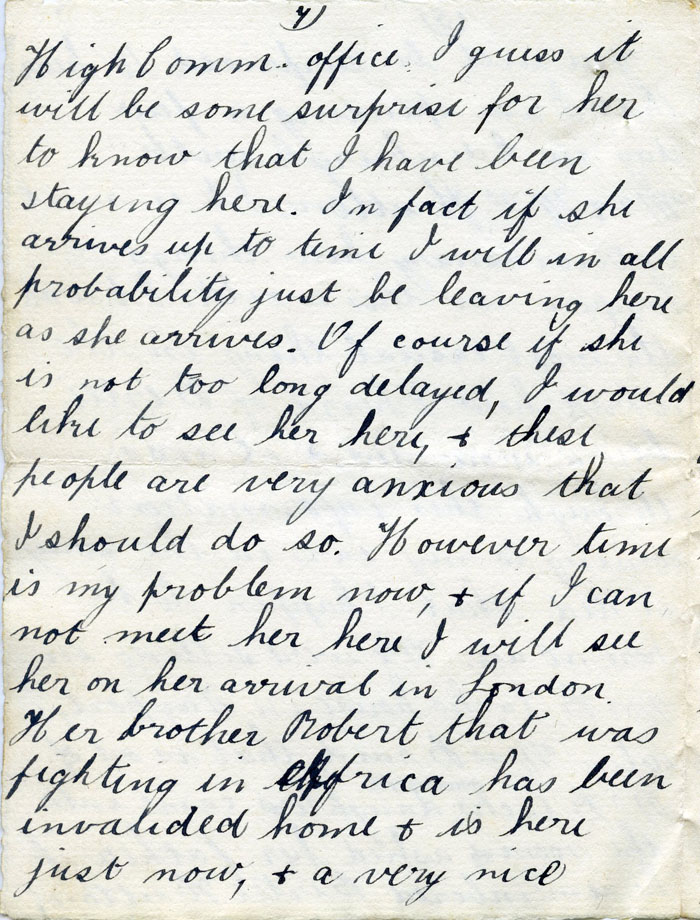 7)
High Comm. office. I guess it
will be some surprise for her
to know that I have been
staying here. In fact if she
arrives up to time I will in all
probability just be leaving here
as she arrives. Of course if she
is not too long delayed, I would
like to see her here, & these
people are very anxious that
I should do so. However time
is my problem now, & if I can
not meet her here I will see
her on her arrival in London
Her brother Robert that was
fighting in Africa has been
invalided home & is here
just now, & a very nice